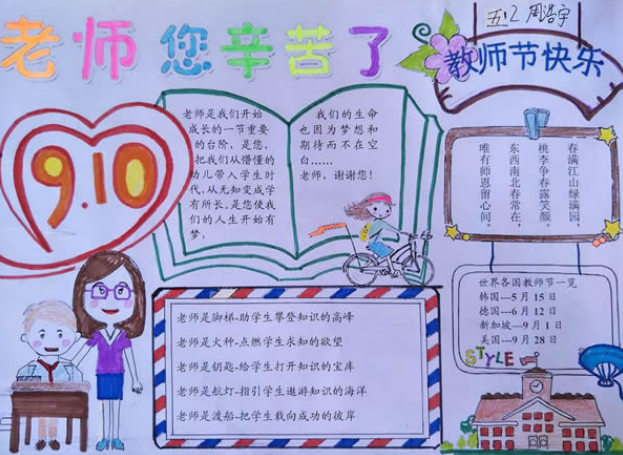 五.2 周浩宇
老师您辛苦了
教师节快乐
9.10
老师是我们开始
成长的一节重要
的台阶，是您，
把我们从懵懂的
幼儿带入学生时
代，从无知变成学
有所长。是您使我
们的人生开始有
梦，
我们的生命
也因为梦想和
期待而不在空
白……
老师，谢谢您！
春满江山绿满园，
桃李争春露笑颜。
东西南北春常在，
唯有师恩留心间。
老师是脚梯-助学生攀登知识的高峰
老师是火种-点燃学生求知的欲望
老师是钥匙-给学生打开知识的宝库
老师是航灯-指引学生遨游知识的海洋
老师是渡船-把学生载向成功的彼岸
世界各国教师节一览
韩国---5月15日
德国---6月12日
新加坡---9月1日
美国---9月28日
STYLE